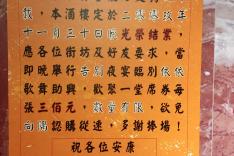 傎，本酒樓定於二零零玖年
十一月三十日光榮結業，
應各位街坊及好友要求，當
即晚舉行告別夜宴臨別依依
歌舞助興，歡聚一堂席券每
張三佰元，數量有限，欲免
向隅認購從速，多謝捧場！
祝各位安康